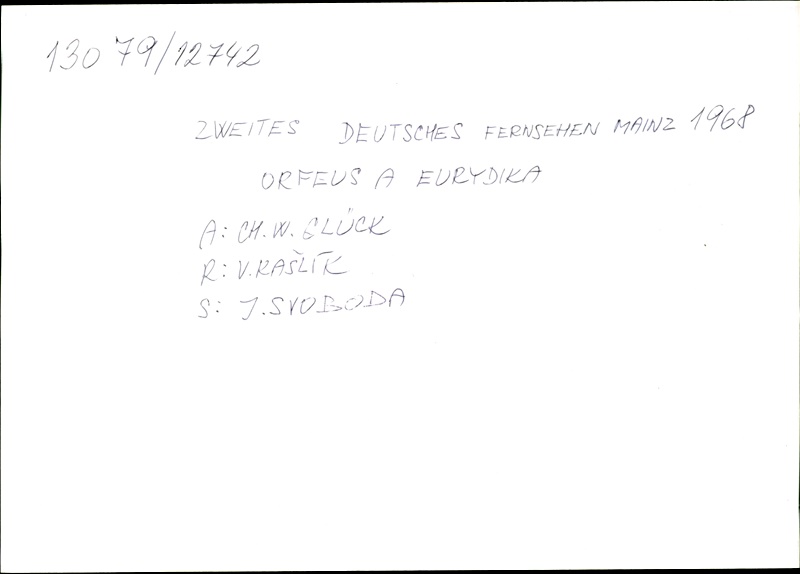 130 79/12742
ZWEITES DEUTSCHES FERNSEHEN MAINZ 1968
ORFEUS A EURYDIKA
A: CH. W. GLÜCK
R: V. KAŠLÍK
S: J. SVOBODA